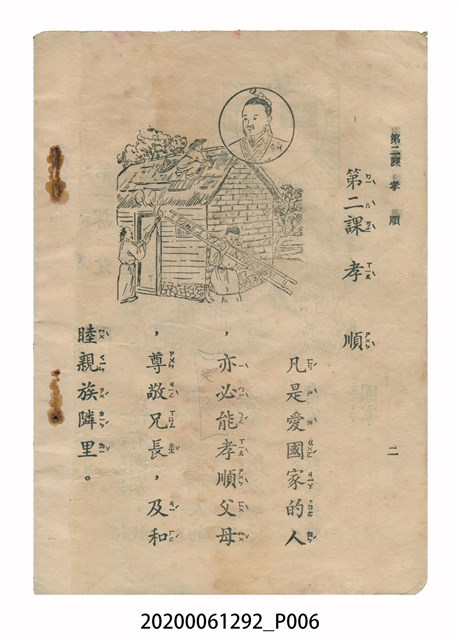 第二課 孝順
二
第二課 孝順
凡是愛國家的人
，亦必能孝順父母
，尊敬兄長，及和
睦親族隣里。
20200061292_P006